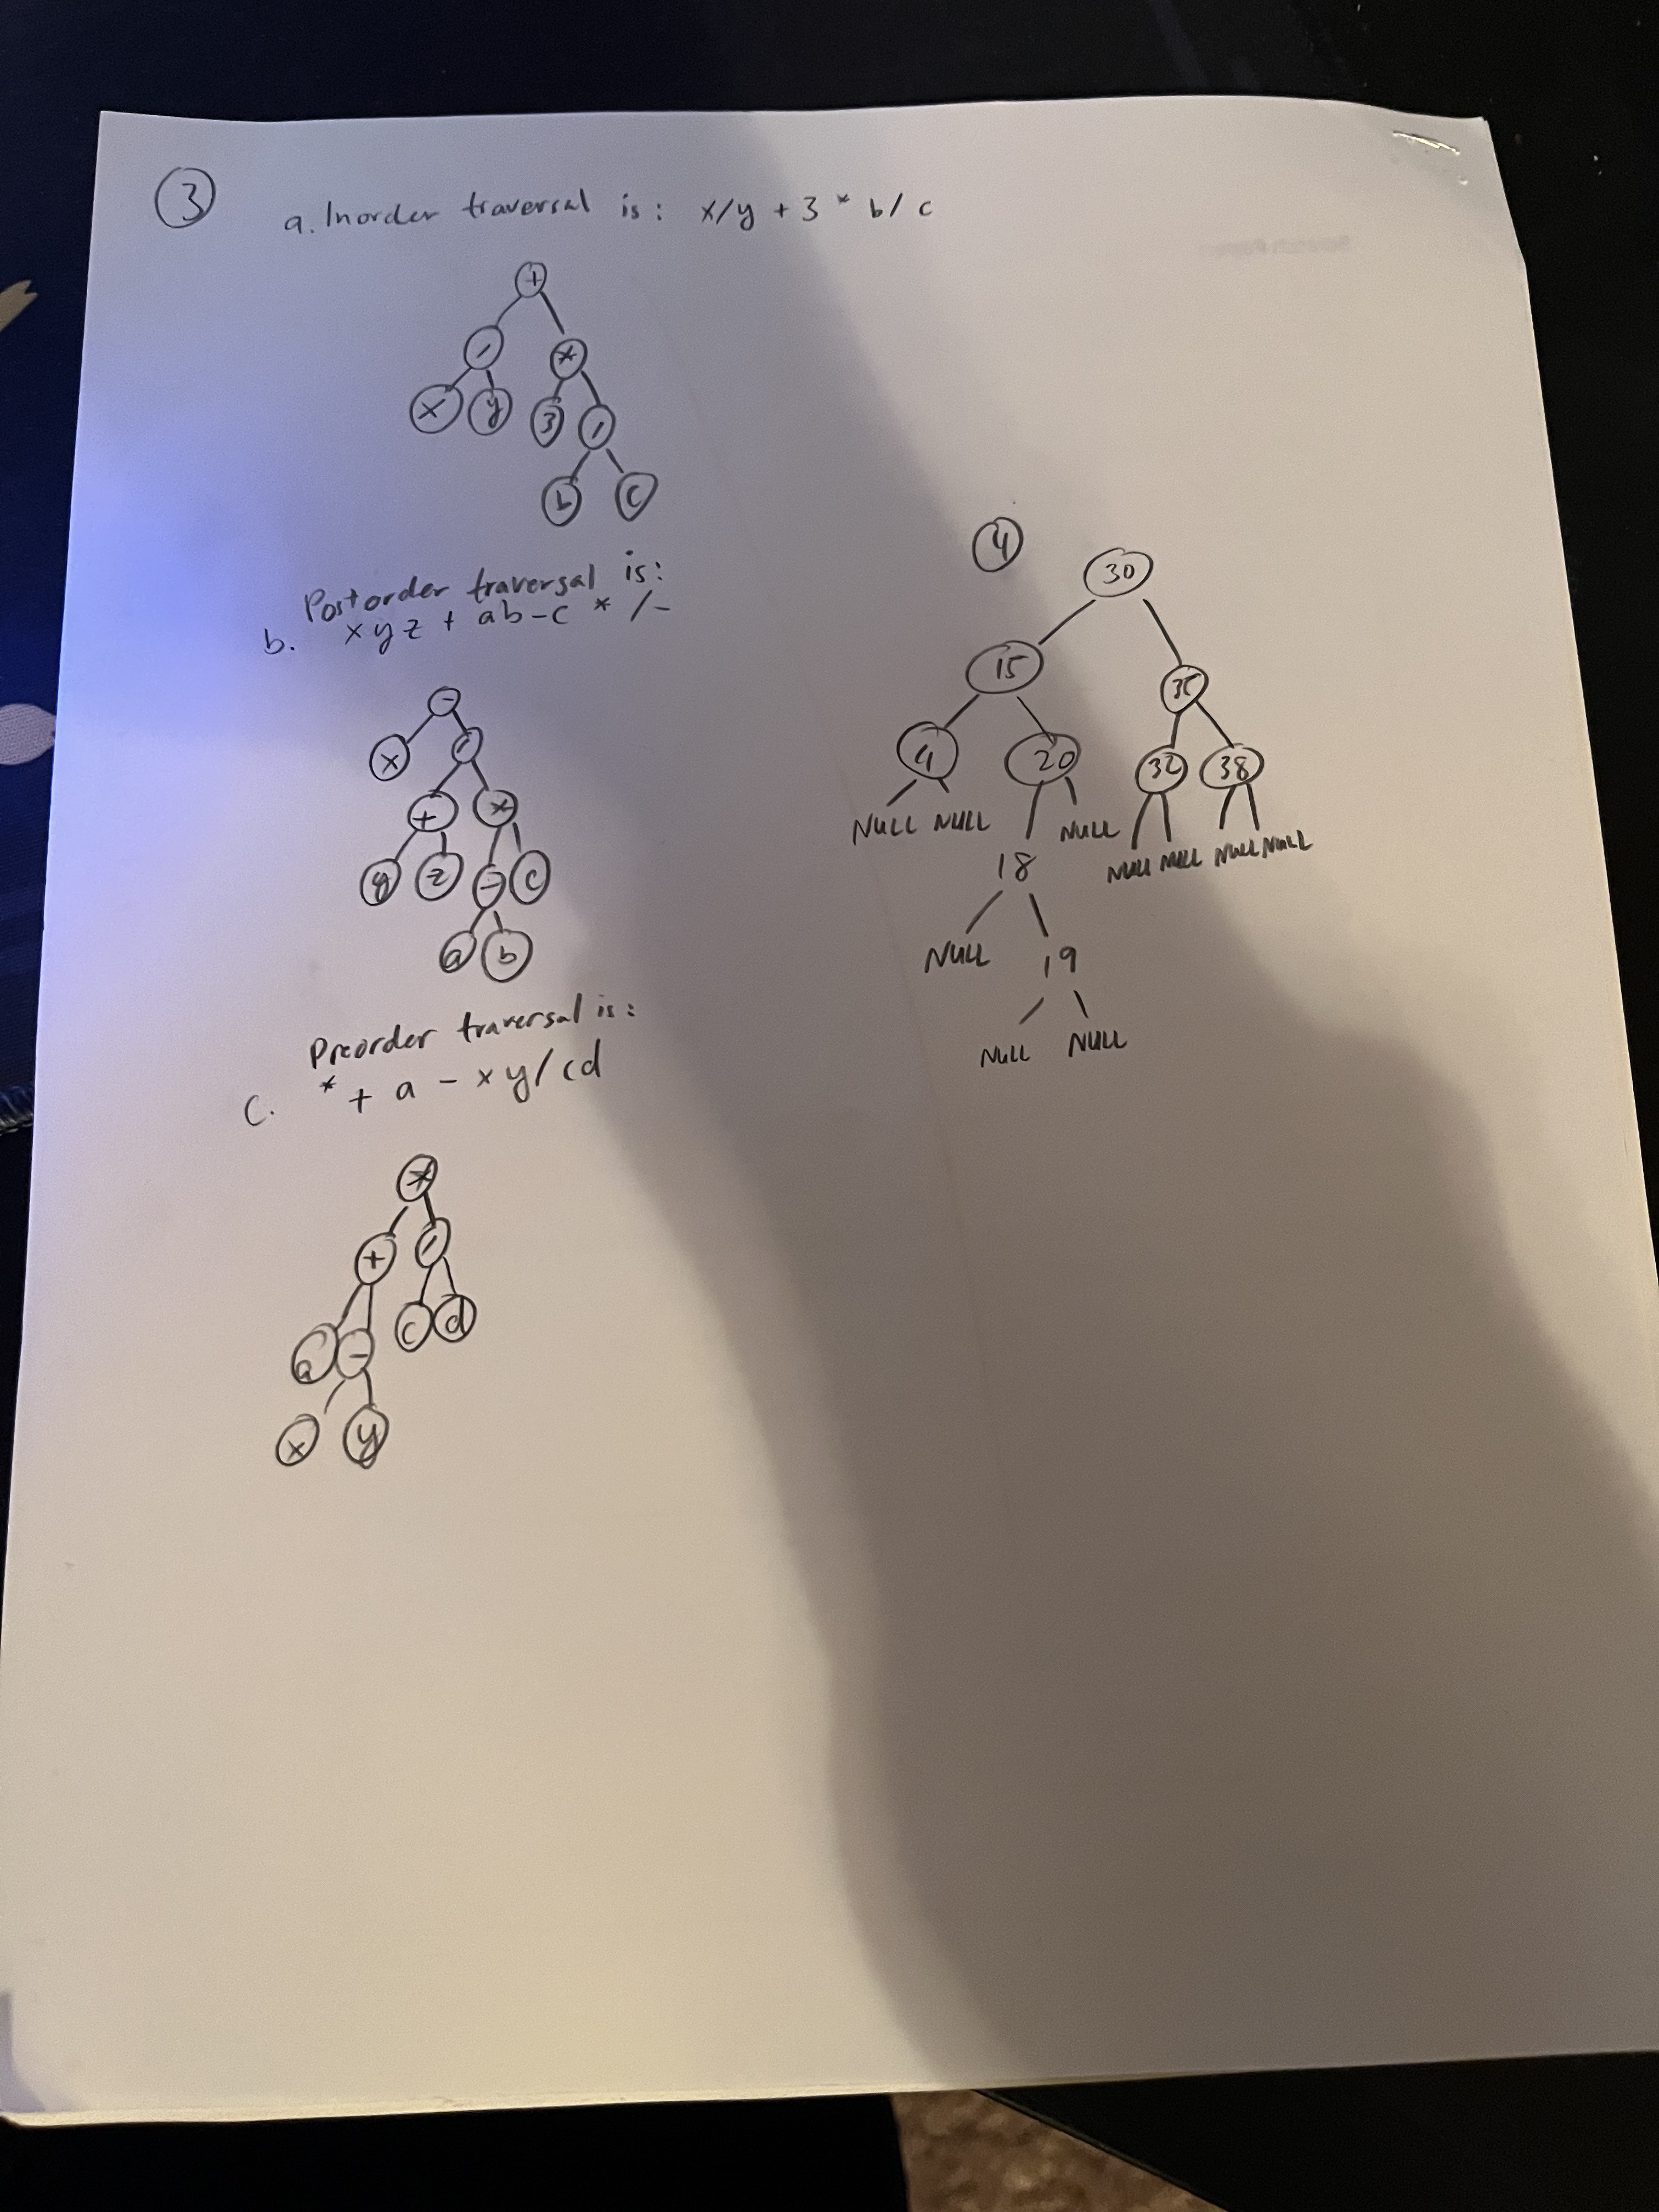 3
a. Inorder traversal is: x/y + 3 * b/c
+
/ *
x y 3 /
b c
Postorder traversal is:
b. xyz + ab-c * /-
-
x /
+ *
y z - c
a b
Preorder traversal is:
c. * + a - xy/cd
*
+ /
a - c d
x y
4
30
15 35
4 20 32 38
NULL NULL 18 NULL NULL NULL NULL NULL
NULL 19
NULL NULL